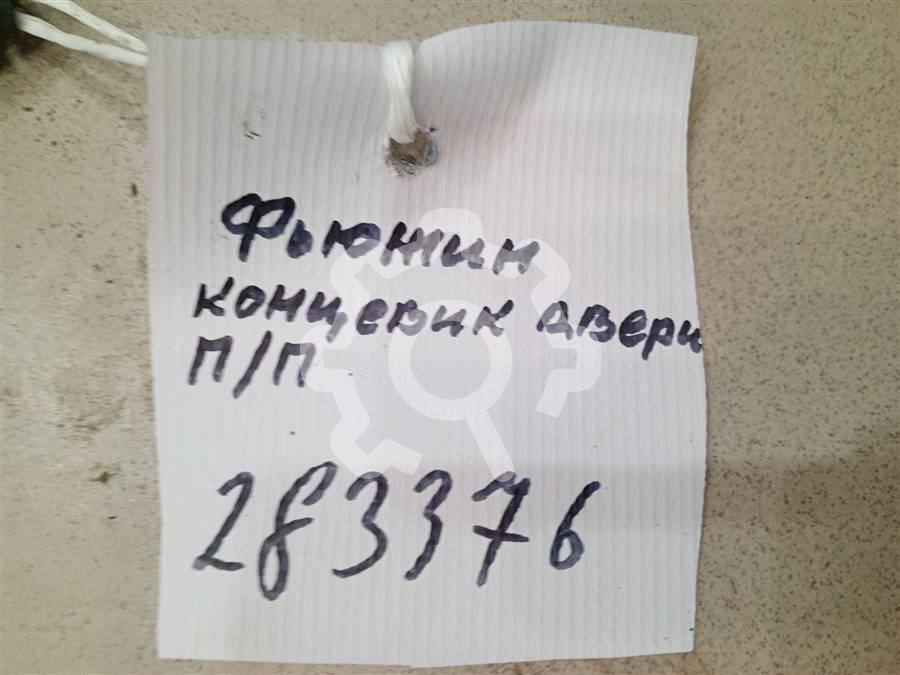 Фьюжин
концевик двери
П/П
283376